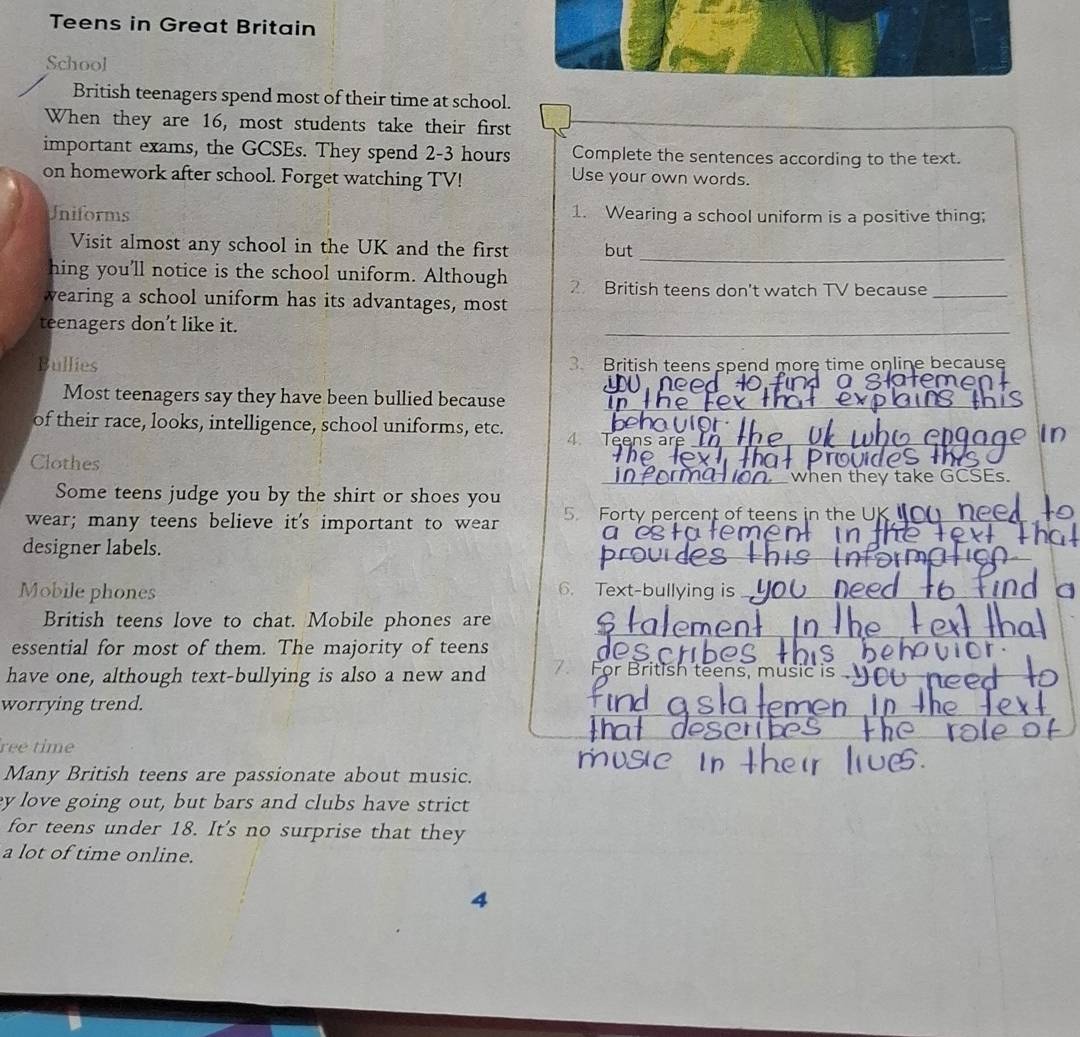 Teens in Great Britain
School
British teenagers spend most of their time at school.
When they are 16, most students take their first
important exams, the GCSEs. They spend 2-3 hours
on homework after school. Forget watching TV!
Uniforms
Visit almost any school in the UK and the first
hing you'll notice is the school uniform. Although
wearing a school uniform has its advantages, most
teenagers don't like it.
Bullies
Most teenagers say they have been bullied because
of their race, looks, intelligence, school uniforms, etc.
Clothes
Some teens judge you by the shirt or shoes you
wear; many teens believe it's important to wear
designer labels.
Mobile phones
British teens love to chat. Mobile phones are
essential for most of them. The majority of teens
have one, although text-bullying is also a new and
worrying trend.
ree time
Many British teens are passionate about music.
ey love going out, but bars and clubs have strict
for teens under 18. It's no surprise that they
a lot of time online.
Complete the sentences according to the text.
Use your own words.
1. Wearing a school uniform is a positive thing;
but
2. British teens don't watch TV because
3. British teens spend more time online because
you need to find a statement
in the tex that explains this
behavior.
4. Teens are in the Uk who engage in
the text, that provides this
information when they take GCSEs.
5. Forty percent of teens in the UK you need to
a estatement in the text that
provides this information
6. Text-bullying is you need to find a
statement in the text that
describes this behavior.
7. For British teens, music is you need to
find a statemen in the text
that describes the role of
music in their lives.
4